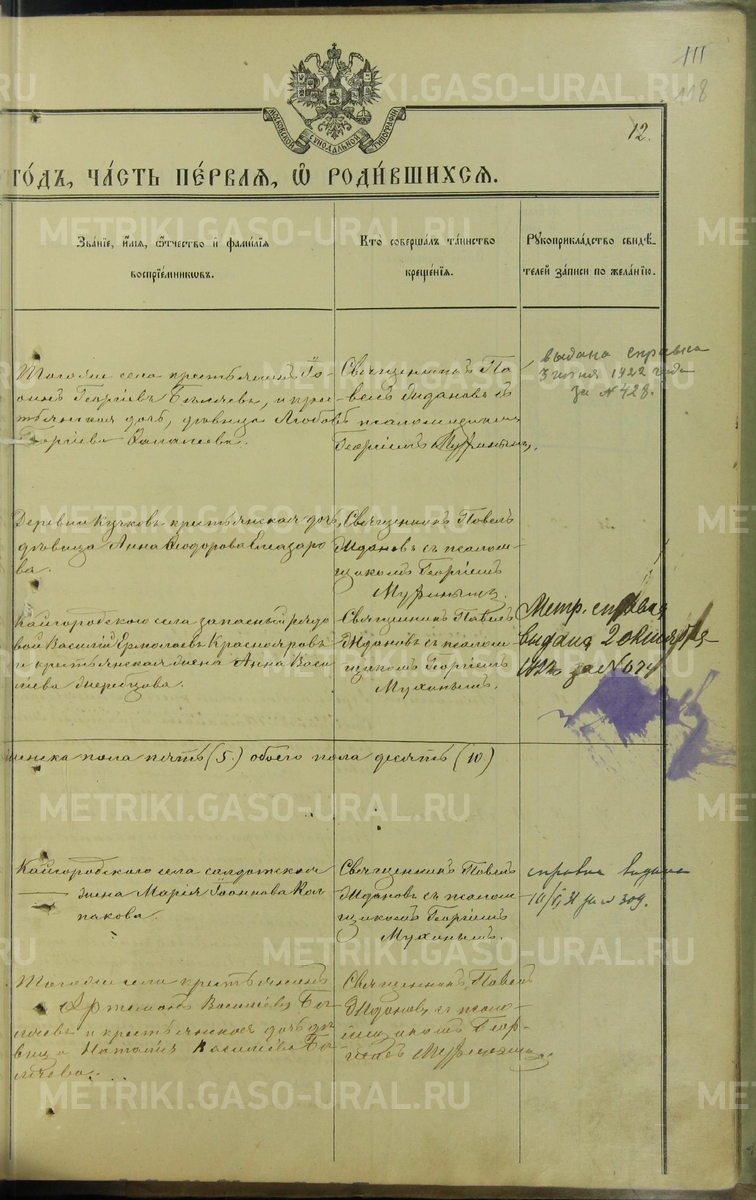 111
118
МОСКОВСКОЙ СУНОДАЛЬНОЙ ТИПОГРАФІИ
12.
ГОДЪ, ЧАСТЬ ПЕРВАЯ, Ѡ РОДИВШИХСЯ.
Званіе, имя, ѿчество и фамилія
воспріемниковъ.
Кто совершалъ таинство
крещенія.
Рукоприкладство свидѣ-
телей записи по желанію.
Тогоже села крестьянинъ Іо-
аннъ Георгіевъ Бѣляевъ, и крес-
тьянская дочь, дѣвица Любовь
Георгіева
Священникъ Па-
велъ Ждановъ съ
псаломщикомъ
Георгіемъ Мухинымъ.
выдана справка
3 июня 1922 года
за № 428.
Деревни Кучковъ крестьянская дочь,
дѣвица Анна Ѳеодорова Елизаро-
ва.
Священникъ Павелъ
Ждановъ съ псалом-
щикомъ Георгіемъ
Мухинымъ.
Кайгородскаго села запасный рядо-
вой Василій Ермолаевъ Краснояровъ
и крестьянская жена Анна Васи-
ліева Жеребцова.
Священникъ Павелъ
Ждановъ съ псалом-
щикомъ Георгіемъ
Мухинымъ.
Метр. справка
выдана 2 октября
1922 за №
женска пола пять (5.) обоего пола десять (10)
Кайгородского села салдатская
жена Марія Іоаннова Кол-
пакова.
Священникъ Павелъ
Ждановъ съ псалом-
щикомъ Георгіемъ
Мухинымъ.
справка выдана
за № 309.
Тогоже села крестьянинъ
Артемонъ Василіевъ Бо-
и крестьянская дочь дѣ-
вица Наталія Василіева Бо-
Священникъ Павелъ
Ждановъ съ псало-
мщикомъ Геор-
гіемъ Мухинымъ.
METRIKI.GASO-URAL.RU